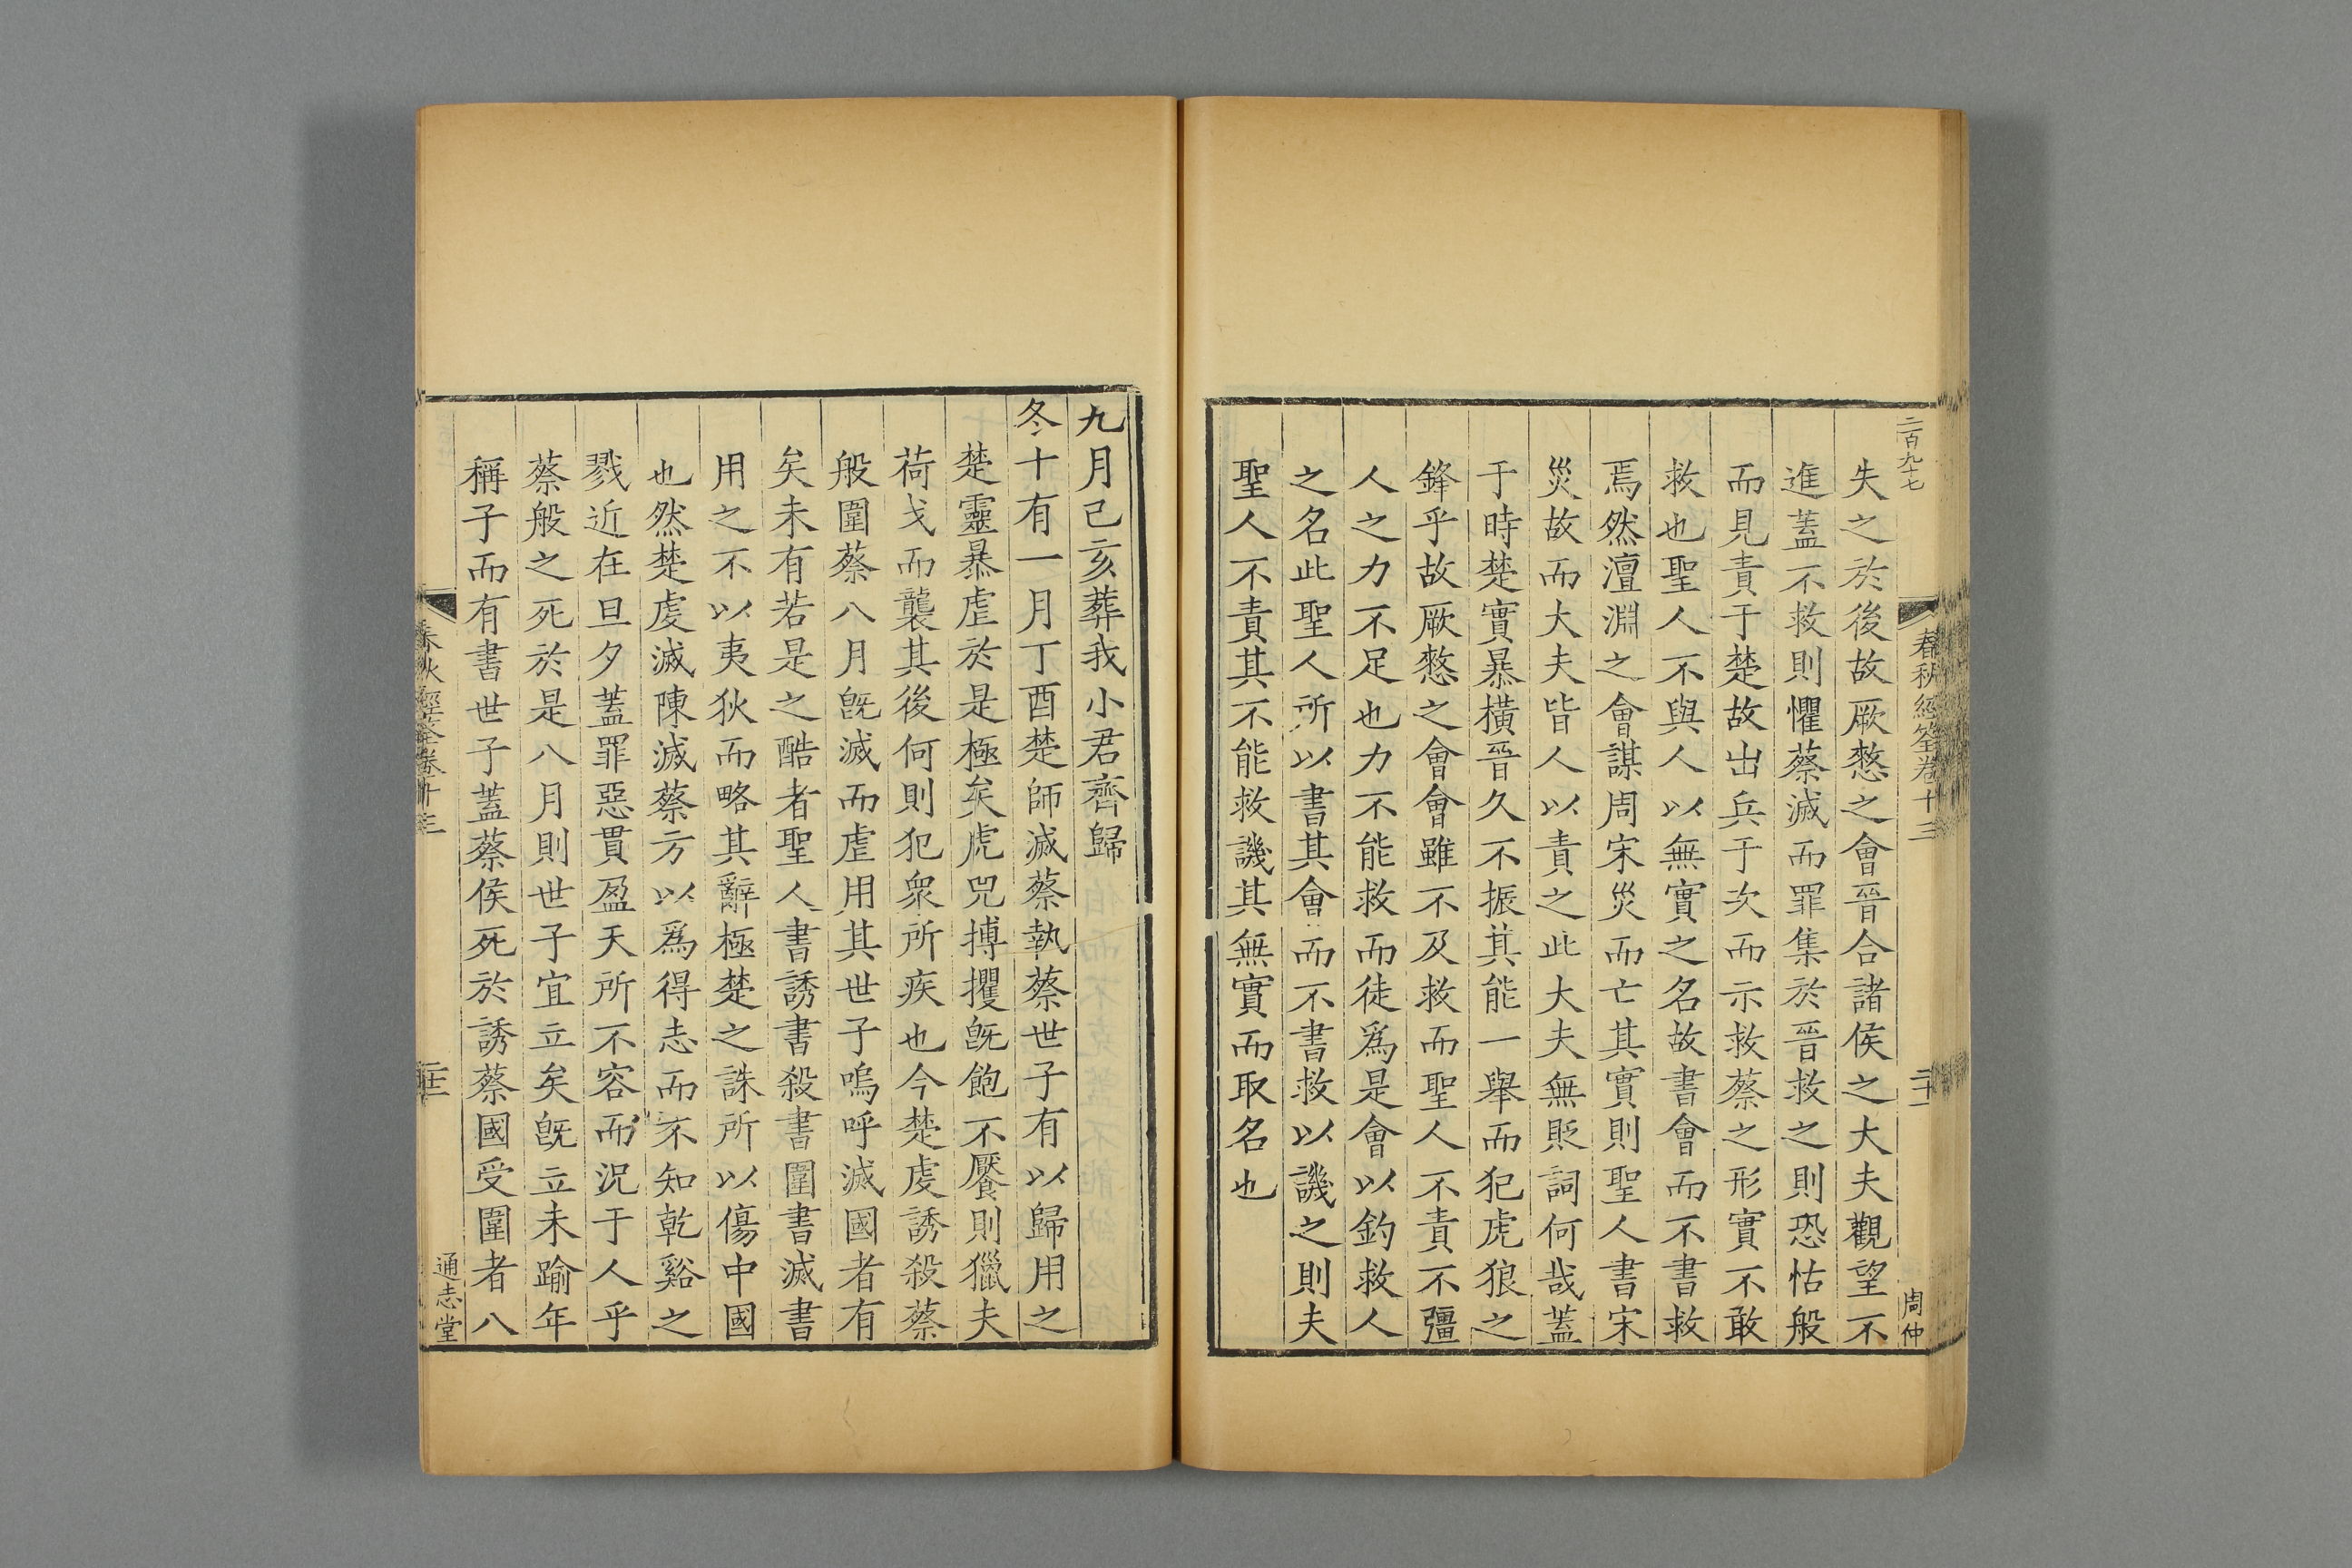 二百九十七
春秋經筌卷十三
二十一
周仲
失之於後故厥憖之會晉合諸侯之大夫觀望不
進蓋不救則懼蔡滅而罪集於晉救之則恐怙般
而見責于楚故出兵于次而示救蔡之形實不敢
救也聖人不與人以無實之名故書會而不書救
焉然澶淵之會謀周宋災而亡其實則聖人書宋
災故而大夫皆人以責之此大夫無貶詞何哉蓋
于時楚實暴橫晉久不振其能一舉而犯虎狼之
鋒乎故厥憖之會會雖不及救而聖人不責不彊
人之力不足也力不能救而徒爲是會以釣救人
之名此聖人所以書其會而不書救以譏之則夫
聖人不責其不能救譏其無實而取名也
九月己亥葬我小君齊歸
冬十有一月丁酉楚師滅蔡執蔡世子有以歸用之
楚靈暴虐於是極矣虎兕搏攫旣飽不饜則獵夫
荷戈而襲其後何則犯衆所疾也今楚虔誘殺蔡
般圍蔡八月旣滅而虐用其世子嗚呼滅國者有
矣未有若是之酷者聖人書誘書殺書圍書滅書
用之不以夷狄而略其辭極楚之誅所以傷中國
也然楚虔滅陳滅蔡方以爲得志而不知乾谿之
戮近在旦夕蓋罪惡貫盈天所不容而況于人乎
蔡般之死於是八月則世子宜立矣旣立未踰年
稱子而有書世子蓋蔡侯死於誘蔡國受圍者八
春秋經筌卷十三
二十二
通志堂